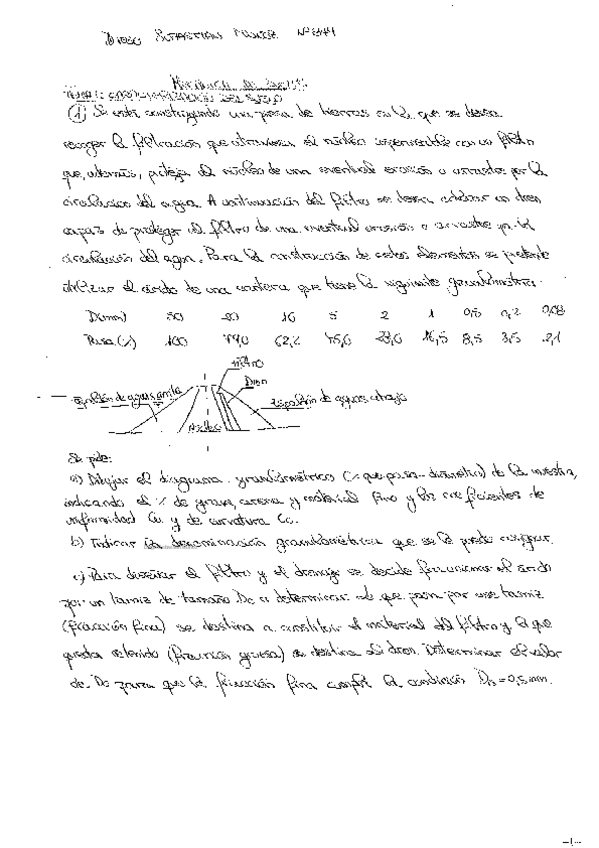 Nº 844
① Se está construyendo una presa de tierras en la que se desea
recoger la filtración que atraviesa el núcleo impermeable con un filtro
que, además, proteja el núcleo de una eventual erosión o arrastre por la
circulación del agua. A continuación del filtro se desea colocar un dren
capaz de proteger el filtro de una eventual erosión o arrastre por la
circulación del agua. Para la construcción de estos elementos se pretende
utilizar el árido de una cantera que tiene la siguiente granulometría.
D(mm) 50 20 16 5 2 1 0,5 0,2 0,08
Pasa (%) 100 79,0 62,2 45,0 16,5 8,5 3,5 2,1
Filtro
Dren
Espaldón de aguas arriba
Espaldón de aguas abajo
Núcleo
Se pide:
a) Dibujar el diagrama granulométrico (% que pasa - diámetro) de la muestra,
indicando el % de grava, arena y material fino y los coeficientes de
uniformidad Cu y de curvatura Cc.
b) Indicar la denominación granulométrica que se le puede asignar.
c) Para diseñar el filtro y el drenaje se decide fraccionar el árido
por un tamiz de tamaño Do a determinar. Lo que pasa por ese tamiz
(fracción fina) se destina a constituir el material del filtro y lo que
queda retenido (fracción gruesa) se destina al dren. Determinar el valor
de Do para que la fracción fina cumpla la condición = 0,5 mm.
-1-